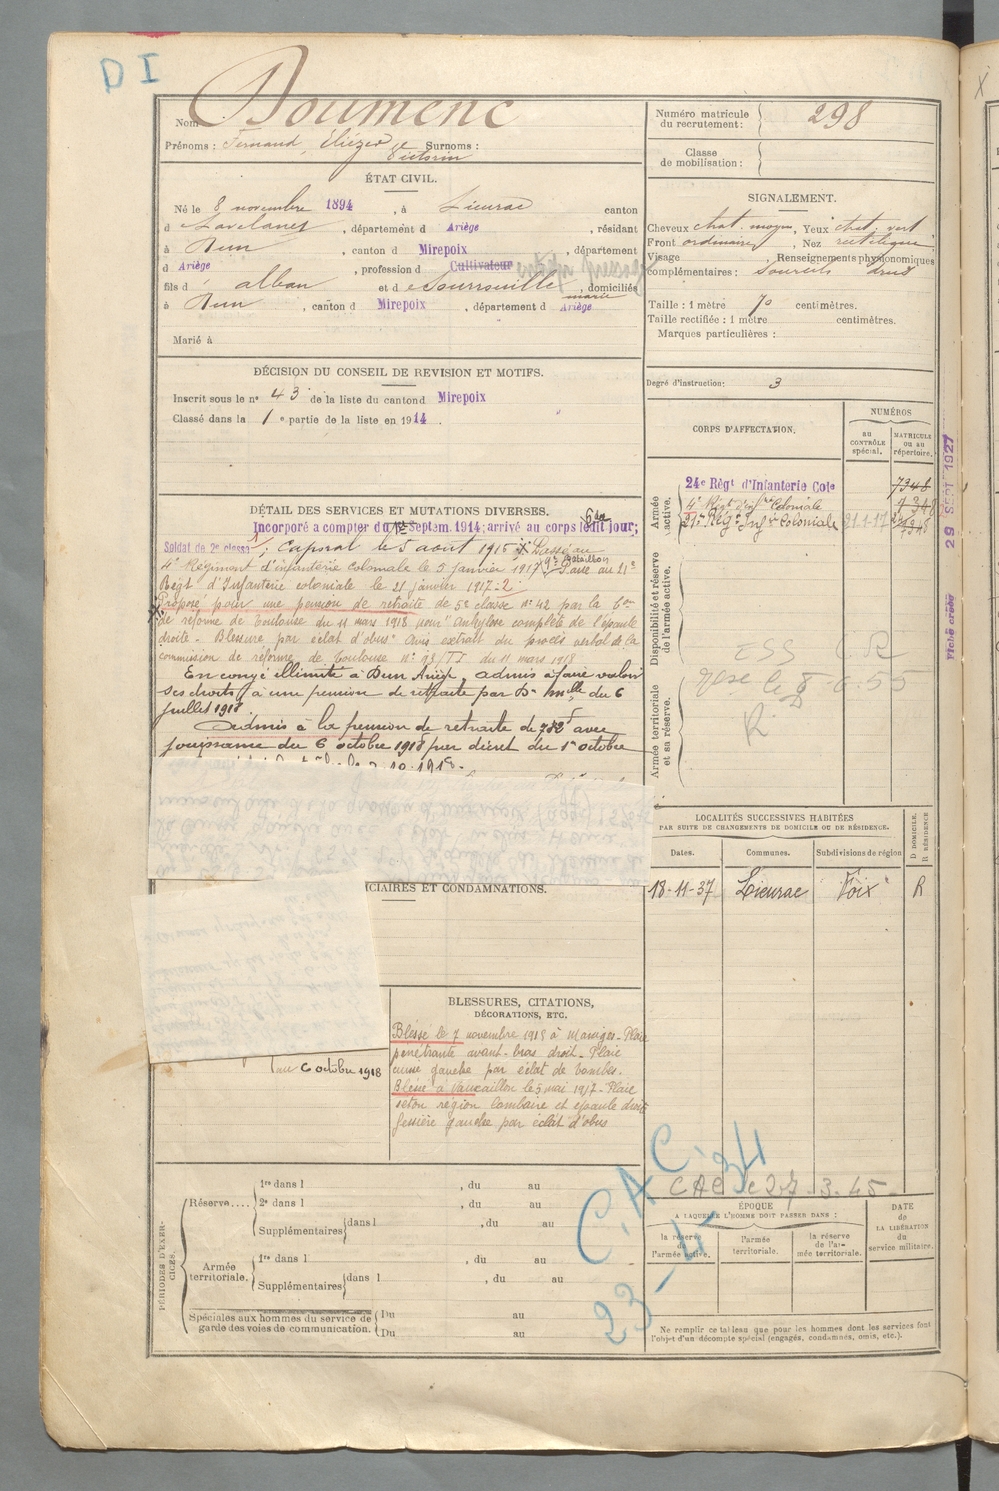 D I
Nom Doumenc
Prénoms : Fernand, Eliézer Surnoms :
Victorin
ÉTAT CIVIL.
Né le 8 novembre 1894, à Lieurac canton
d Lavelanet, département d Ariège, résidant
à Dun, canton d Mirepoix, département
d Ariège, profession d Cultivateur
fils d alban et d Sourrouille, domiciliés
marie
à Dun, canton d Mirepoix, département d Ariège
Marié à
DÉCISION DU CONSEIL DE REVISION ET MOTIFS.
Inscrit sous le n° 43 de la liste du canton d Mirepoix
Classé dans la 1e partie de la liste en 1914.
DÉTAIL DES SERVICES ET MUTATIONS DIVERSES.
Incorporé a compter du Septem. 1914; arrivé au corps ledit jour;
Soldat de 2e classe; Caporal le 5 août 1915 Passé au
4e Régiment d'infanterie coloniale le 5 janvier 1917 Passé au 21e
Bataillon
Régt d'Infanterie coloniale le 21 janvier 1917
Proposé pour une pension de retraite de 5e classe n° 42 par la
de réforme de Toulouse du 11 mars 1918 pour "ankylose complète de l'épaule
droite - Blessure par éclat d'obus" avis extrait du procès verbal de la
commission de réforme de Toulouse n° 93/TT du 11 mars 1918
En congé illimité à Dun Ariège, admis à faire valoir
ses droits à une pension de retraite par Dn mlle du 6
juillet 1918
admis à la pension de retraite de 782f avec
jouissance du 6 octobre 1918 par décret du 1er octobre
10.1918.
CIAIRES ET CONDAMNATIONS.
au 6 octobre 1918
BLESSURES, CITATIONS,
DÉCORATIONS, ETC.
Blessé le 7 novembre 1915 à Massiges - Plaie
pénétrante avant-bras droit - Plaie
cuisse gauche par éclat de bombes.
Blessé à Vauxaillon le 5 mai 1917 - Plaie
séton région lombaire et épaule droite
fessière gauche par éclat d'obus
PÉRIODES D'EXERCICES.
Réserve....
1re dans l , du au
2e dans l , du au
Supplémentaires dans l , du au
Armée territoriale.
1re dans l , du au
Supplémentaires dans l , du au
Spéciales aux hommes du service de garde des voies de communication.
Du au
Du au
Numéro matricule du recrutement : 298
Classe de mobilisation :
SIGNALEMENT.
Cheveux chat. moyen, Yeux chat. vert
Front ordinaire, Nez rectiligne
Visage , Renseignements physionomiques
complémentaires : sourcils droits
Taille : 1 mètre 70 centimètres.
Taille rectifiée : 1 mètre centimètres.
Marques particulières :
Degré d'instruction : 3
CORPS D'AFFECTATION.
NUMÉROS
au CONTRÔLE spécial.
MATRICULE ou au répertoire.
Armée active.
24e Régt d'Infanterie Cole 7348
4e Régt d'inf.rie Coloniale 7348
21e Rég. Inf.ie Coloniale 21-1-17
Disponibilité et réserve de l'armée active.
ESS C R
Armée territoriale et sa réserve.
R
29 SEPT 1927
Fiche créée
LOCALITÉS SUCCESSIVES HABITÉES
PAR SUITE DE CHANGEMENTS DE DOMICILE OU DE RÉSIDENCE.
Dates. Communes. Subdivisions de région D DOMICILE. R RÉSIDENCE
18-11-37 Lieurac Foix R
C.A.C. 34
23-4
CAC le 27.3.45
ÉPOQUE
A LAQUELLE L'HOMME DOIT PASSER DANS :
la réserve de l'armée active.
l'armée territoriale.
la réserve de l'armée territoriale.
DATE de LA LIBÉRATION du service militaire.
Ne remplir ce tableau que pour les hommes dont les services font
l'objet d'un décompte spécial (engagés, condamnés, omis, etc.).